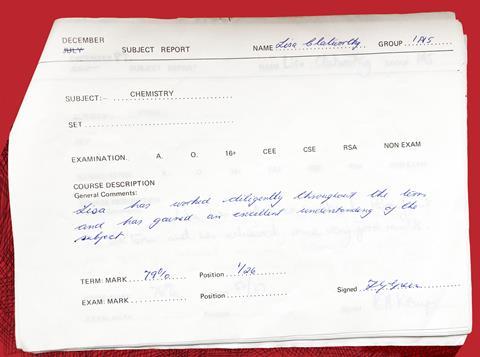 DECEMBER
JULY SUBJECT REPORT NAME Lisa Clatworthy. GROUP 1A15
SUBJECT:- CHEMISTRY
SET
EXAMINATION. A. O. 16+ CEE CSE RSA NON EXAM
COURSE DESCRIPTION
General Comments:
Lisa has worked diligently throughout the term
and has gained an excellent understanding of the
subject.
TERM: MARK 79% Position 1/26
EXAM: MARK Position
Signed